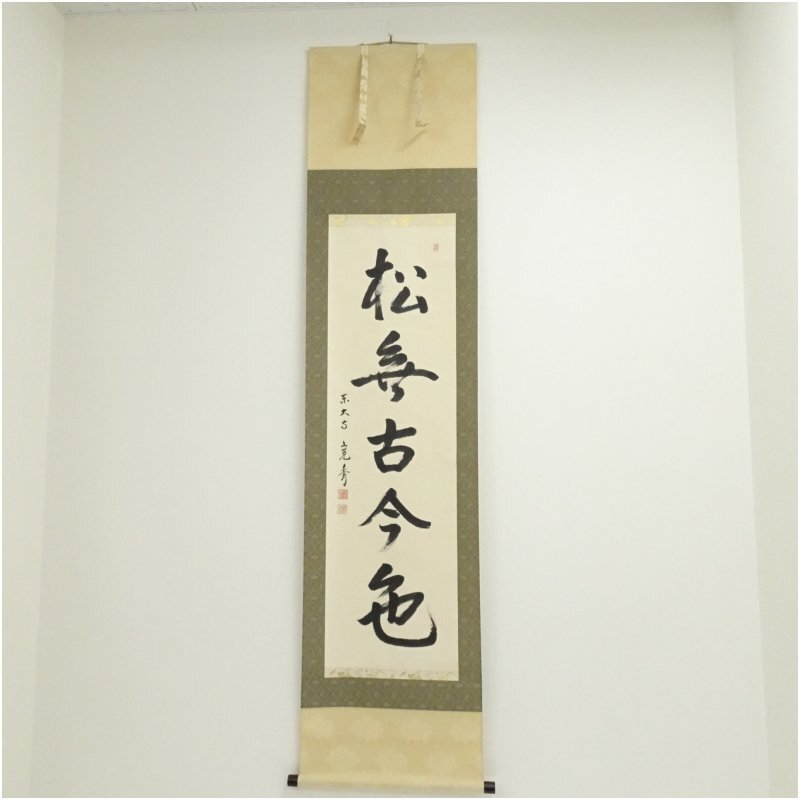 松無古今色
東大寺 寛秀